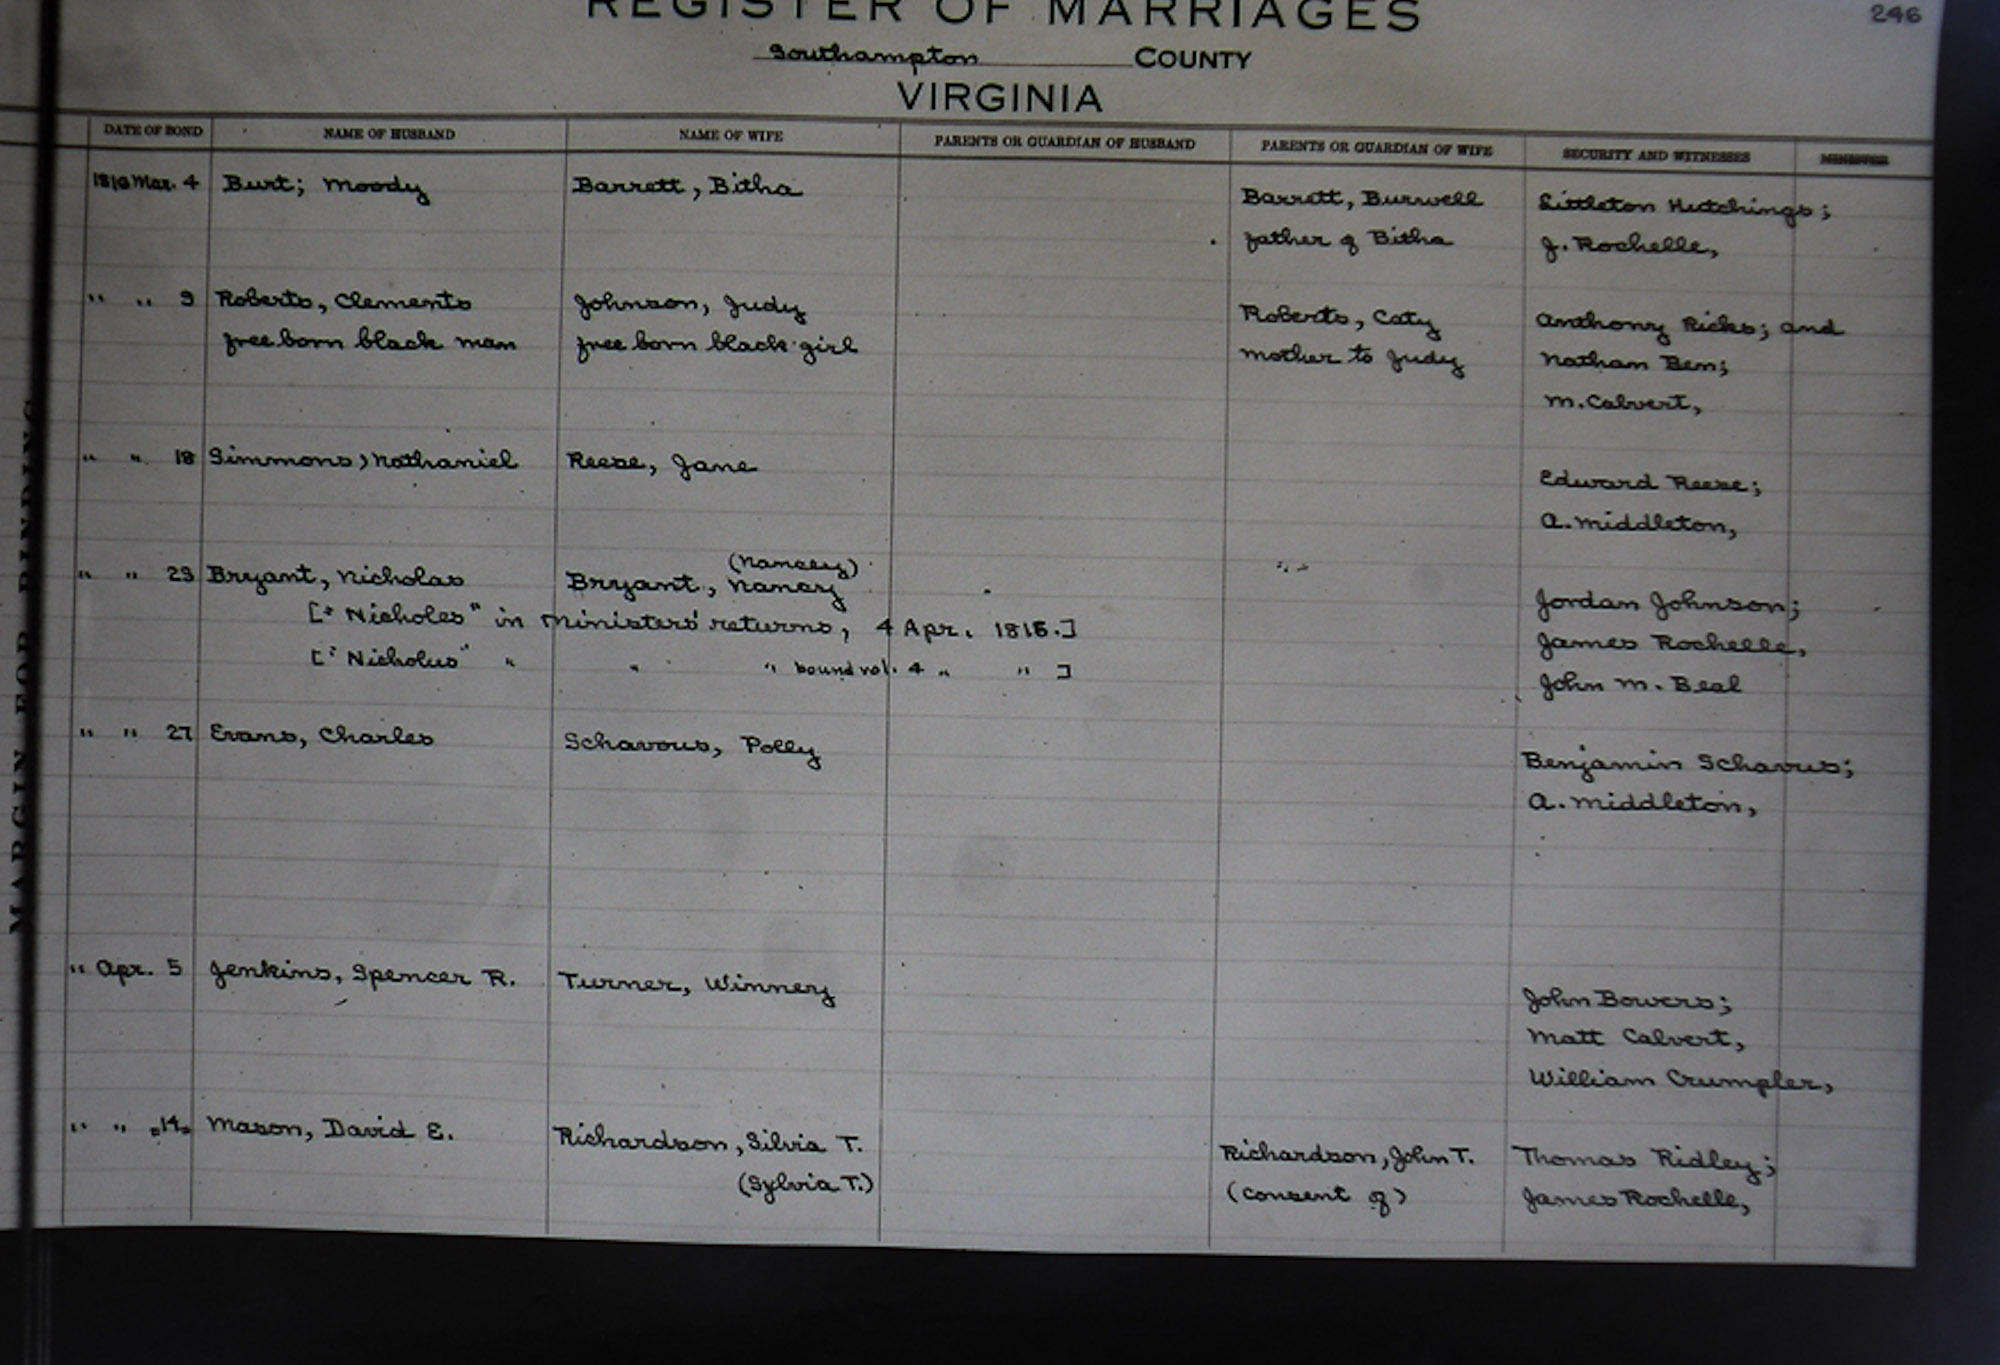 REGISTER OF MARRIAGES
246
Southampton COUNTY
VIRGINIA
DATE OF BOND NAME OF HUSBAND NAME OF WIFE PARENTS OR GUARDIAN OF HUSBAND PARENTS OR GUARDIAN OF WIFE SECURITY AND WITNESSES MINISTER
1816 Mar. 4 Burt; Moody Barrett, Bitha Barrett, Burwell Littleton Hutchings;
father of Bitha J. Rochelle,
" " 9 Roberts, Clements Johnson, Judy Roberts, Caty Anthony Ricks; and
free born black man free born black girl mother to Judy Nathan Ben;
M. Calvert,
" " 18 Simmons, Nathaniel Reese, Jane Edward Reese;
A. Middleton,
(Nancey)
" " 23 Bryant, Nicholas Bryant, Nancy Jordan Johnson;
[" Nicholes" in Ministers' returns, 4 Apr. 1816.] James Rochelle,
[" Nicholus" " " " bound vol. 4 " " ] John M. Beal
" " 27 Evans, Charles Schavous, Polly Benjamin Schavus;
A. Middleton,
" Apr. 5 Jenkins, Spencer R. Turner, Winney John Bowers;
Matt Calvert,
William Crumpler,
" " 14 Mason, David E. Richardson, Silvia T. Richardson, John T. Thomas Ridley;
(Sylvia T.) (consent of) James Rochelle,
MARGIN FOR BINDING